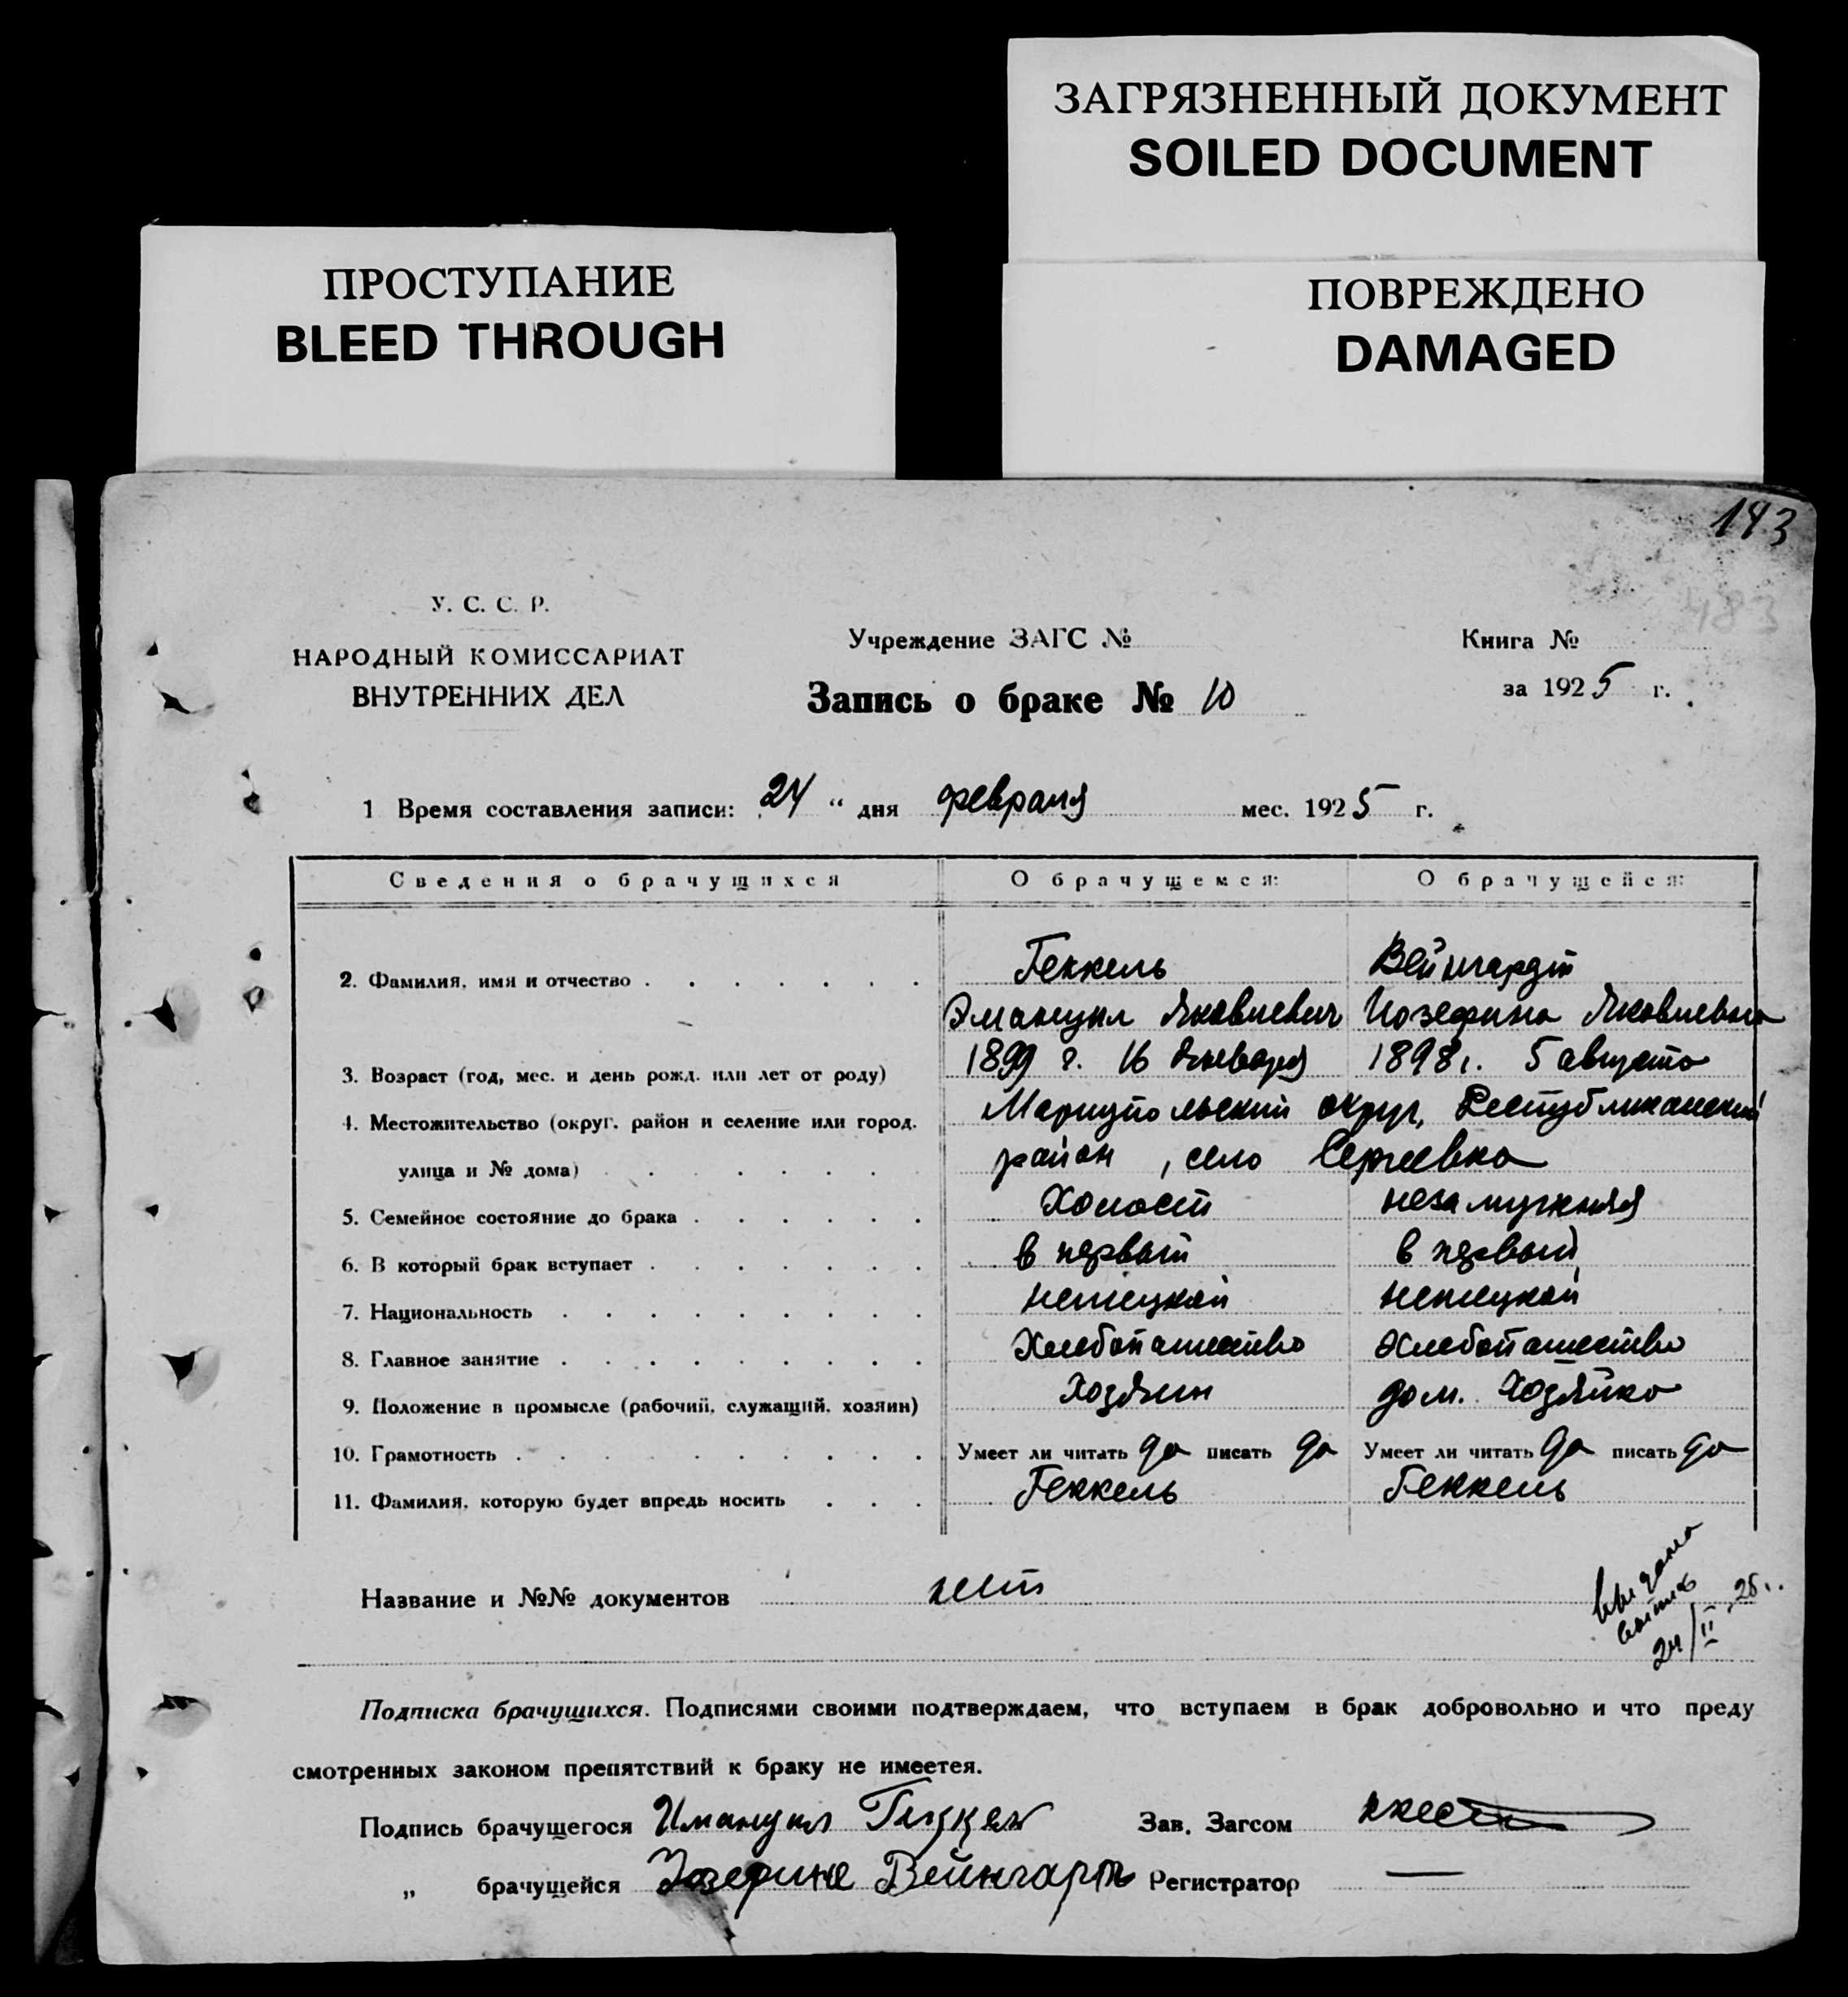 ЗАГРЯЗНЕННЫЙ ДОКУМЕНТ
SOILED DOCUMENT
ПРОСТУПАНИЕ
BLEED THROUGH
ПОВРЕЖДЕНО
DAMAGED
143
483
У. С. С. Р.
НАРОДНЫЙ КОМИССАРИАТ
ВНУТРЕННИХ ДЕЛ
Учреждение ЗАГС №
Запись о браке № 10
Книга №
за 1925 г.
1 Время составления записи: 24 " дня февраля мес. 1925 г.
Сведения о брачущихся О брачущемся: О брачущейся:
2. Фамилия, имя и отчество Геккель Вейнгардт
Эмануил Яковлевич Иозефина Яковлевна
3. Возраст (год, мес. и день рожд. или лет от роду) 1899 г. 16 Января 1898 г. 5 августа
4. Местожительство (округ, район и селение или город, Мариупольский округ, Республиканский
улица и № дома) район, село Сергеевка
5. Семейное состояние до брака Холост незамужняя
6. В который брак вступает в первый в первый
7. Национальность немецкой немецкой
8. Главное занятие Хлебопашество Хлебопашество
9. Положение в промысле (рабочий, служащий, хозяин) Хозяин дом. Хозяйка
10. Грамотность Умеет ли читать да писать да Умеет ли читать да писать да
11. Фамилия, которую будет впредь носить Геккель Геккель
Название и №№ документов нет
выдана
24/II 25 г.
Подписка брачущихся. Подписями своими подтверждаем, что вступаем в брак добровольно и что преду
смотренных законом препятствий к браку не имеетея.
Подпись брачущегося Имануил Геккель Зав. Загсом
" брачущейся Иозефина Вейнгарт Регистратор —